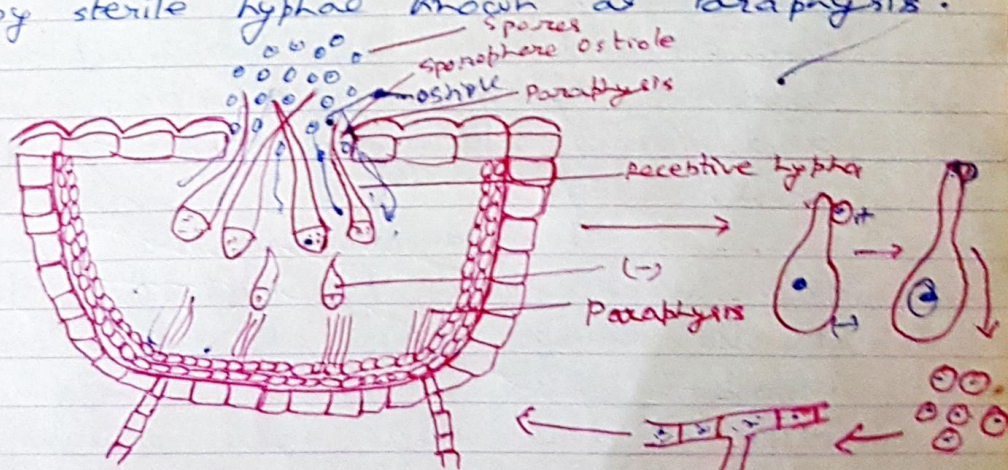 by sterile hyphae known as Paraphysis.
Spores
Sporophere Ostiole
ostiole
Paraphysis
Receptive hypha
+
(-)
(-)
Paraphysis